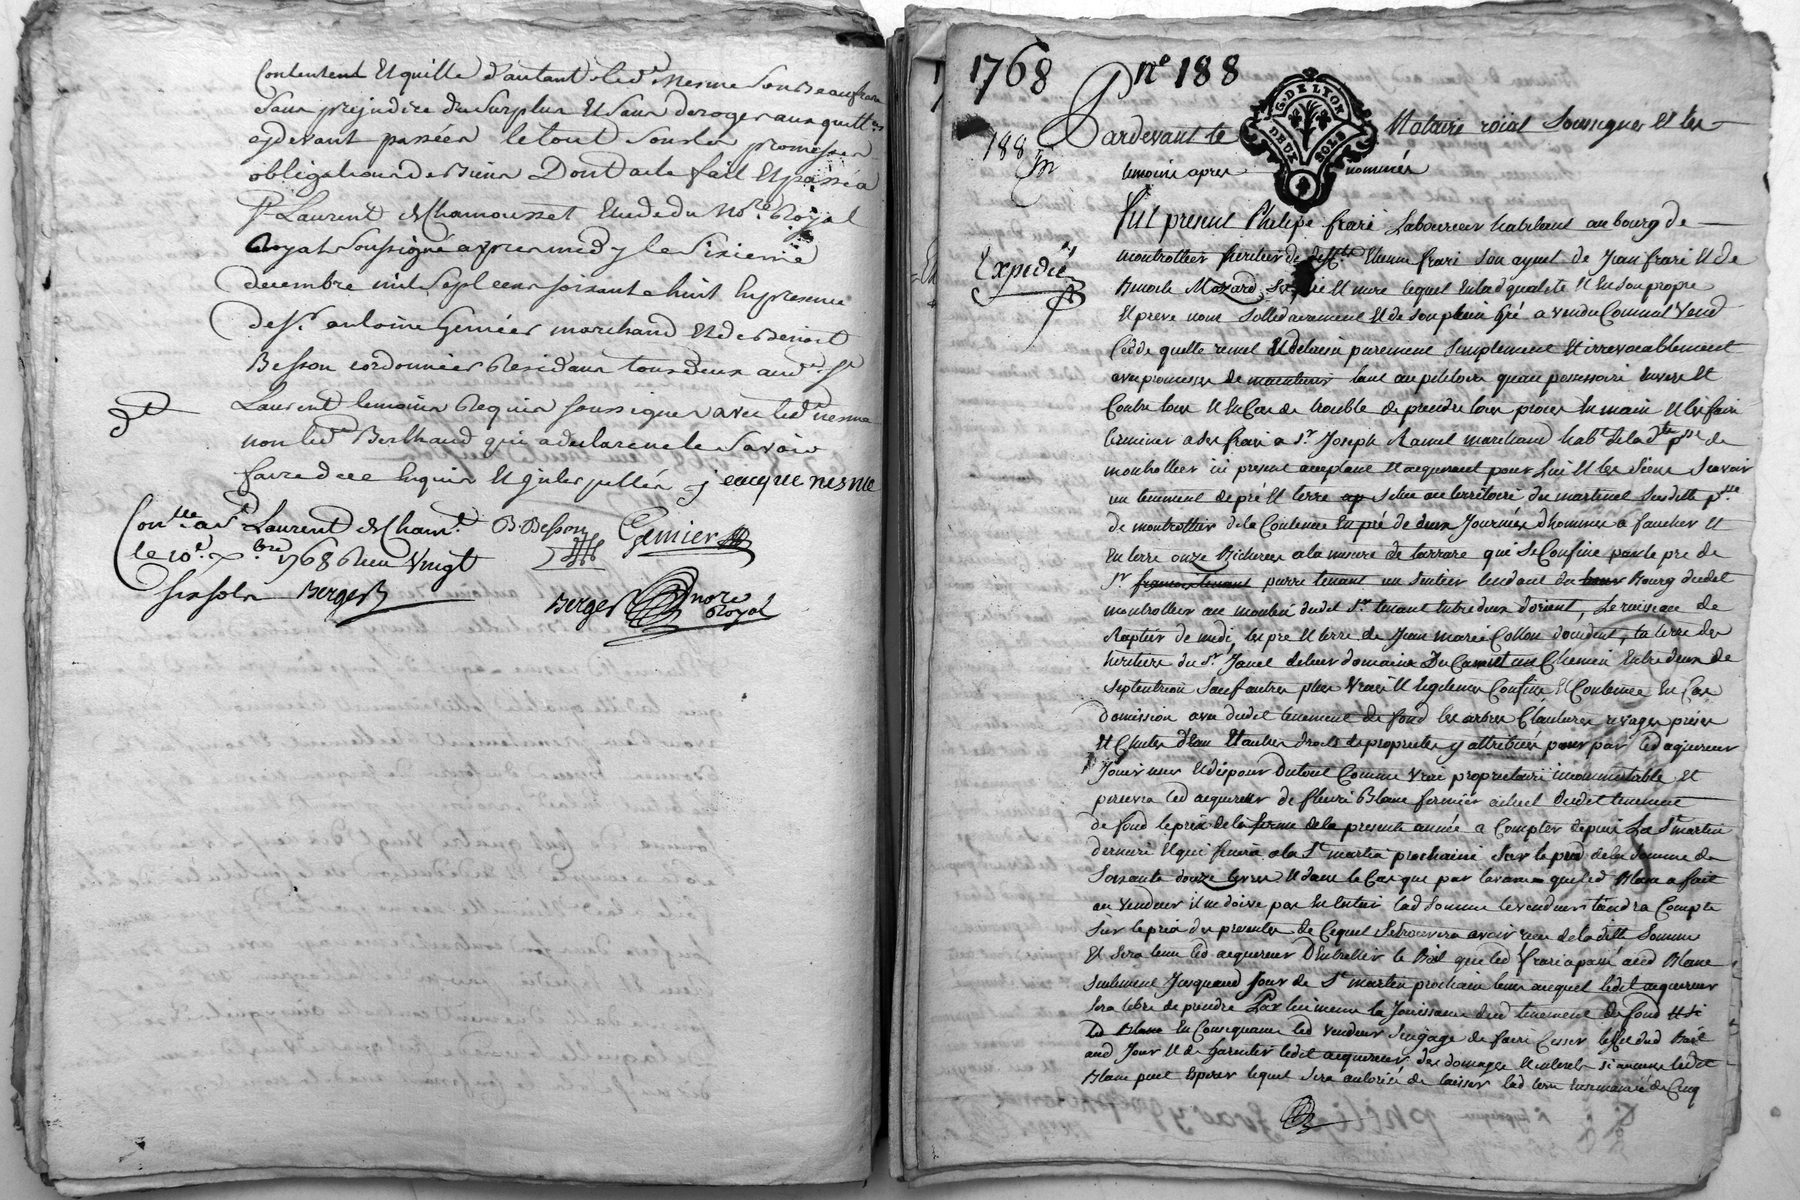 Contentent et quitte d'autant led.t nesme son Beaufrere
sans prejudice du surplus et sans deroger aux quitt.es
cydevant passées le tout sous les promesses
obligations de Biens Dont acte fait et passé a
S.t Laurent de Chamousset etude du No.re Royal
Royal soussigné apres midy le sixieme
decembre mil sept cens soixante huit en presence
de S.r antoine Genier marchand et de Benoit
Besson cordonnier Residans tous deux aud.t S.t
Laurent temoins Requis soussignes avec led.t nesme
non led.t Berthaud qui a declaré ne le savoir
faire de ce enquis et
jeacque nesme
Con.lle a S.t Laurent de Cham.t B. Besson Genier
le 10.e x.bre 1768 Reçu Vingt
six sols Berger
Berger no.re Royal
1768 n° 188
G. DE LYON
DEUX SOLS
188
Pardevant le Notaire roial soussignes et les
temoins apres nommés
Expedié
fut present Philipe frari Laboureur habitant au bourg de
montrottier heritier de Etienne frari son ayeul de Jean frari et de
Benoite Mazard ses pere et mere lequel en lad qualité et en son propre
et privé nom sollidairement et de son plein gré a vendu Comme il Vend
Cedde quitte remet et delaisse purement simplement et irrevocablement
avec promesse de maintenir tant au petitoire qu'au possessoire envers et
Contre tous et en Cas de trouble de prendre leur proces en main et les faire
terminer a ses frais a S.r Joseph Ramel marchand hab.t de la d.te p.sse de
montrottier ici present acceptant et acquerant pour lui et les siens Scavoir
un tenement de pré et terre situé au territoire du martinet susditte p.sse
de montrottier de la Contenue en pré de deux Journées d'hommes a faucher et
en terre onze Bicherées a la mesure de tarrare qui se Confine par le pré de
S.r pierre tenant un sentier tendant du Bourg dudit
montrottier au moulin dudit S.r tenant entre deux d'orient, le ruisseau de
Raptier de midi, les pré et terre de Jean marie Collon d'occident, la terre des
heritiers du S.r Janel de leur domaine Du Camet un Chemin entre deux de
septentrion sauf autres plus vrais et legitimes Confins et Contenue en Cas
d'omission avec dudit tenement de fond les arbres Clautures rivages prises
et Chutes d'eau et autres droits de proprietes y attribués pour par led acquereur
Jouir user et disposer du tout Comme vrai proprietaire incommutable et
percevra led acquereur de fleuri Blanc fermier actuel dudit tenement
de fond le prix de la ferme de la presente année a Compter depuis La S.t martin
derniere et qui finira a la S.t martin prochaine sur le pied de la somme de
soixante douze livres et dans le Cas que par lavance que led Blanc a fait
au vendeur il ne doive pas en entier lad somme le vendeur tiendra Compte
sur le prix des presentes de Ce quil se trouvera avoir reçu de laditte somme
et sera tenu led acquereur D'entretenir le Bail que led frari a passé aud Blanc
seulement Jusquau Jour de S.t martin prochain tems auquel ledit acquereur
sera libre de prendre Par lui meme la Jouissance dud tenement de fond et si
led Blanc en Consequance led vendeur s'engage de faire Cesser leffet dud Bail
aud Jour et de garentir ledit acquereur des domages et interets si aucuns ledit
Blanc peut esperer lequel sera autorisé de laisser lad terre ensemencée de Cinq